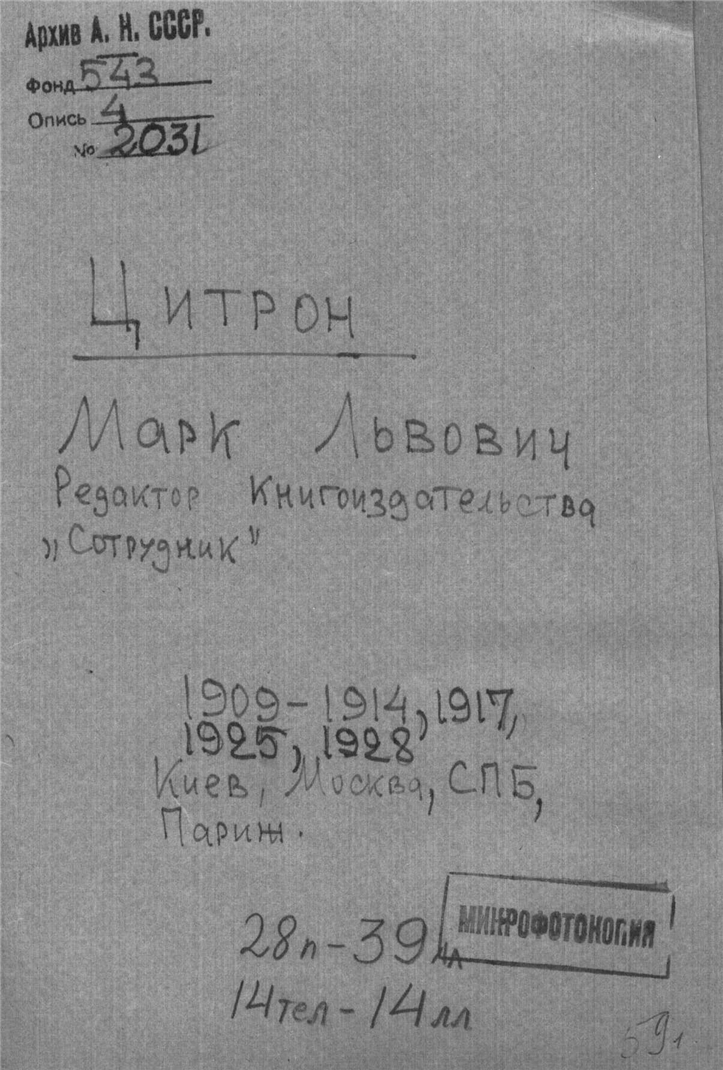 Архив А. Н. СССР.
Фонд 543
Опись 4
№ 2031
Цитрон
Марк Львович
Редактор Книгоиздательства
„Сотрудник"
1909-1914, 1917,
1925, 1928
Киев, Москва, СПБ,
Париж.
МИКРОФОТОКОПИЯ
28п-39лл
14тел-14лл
59л